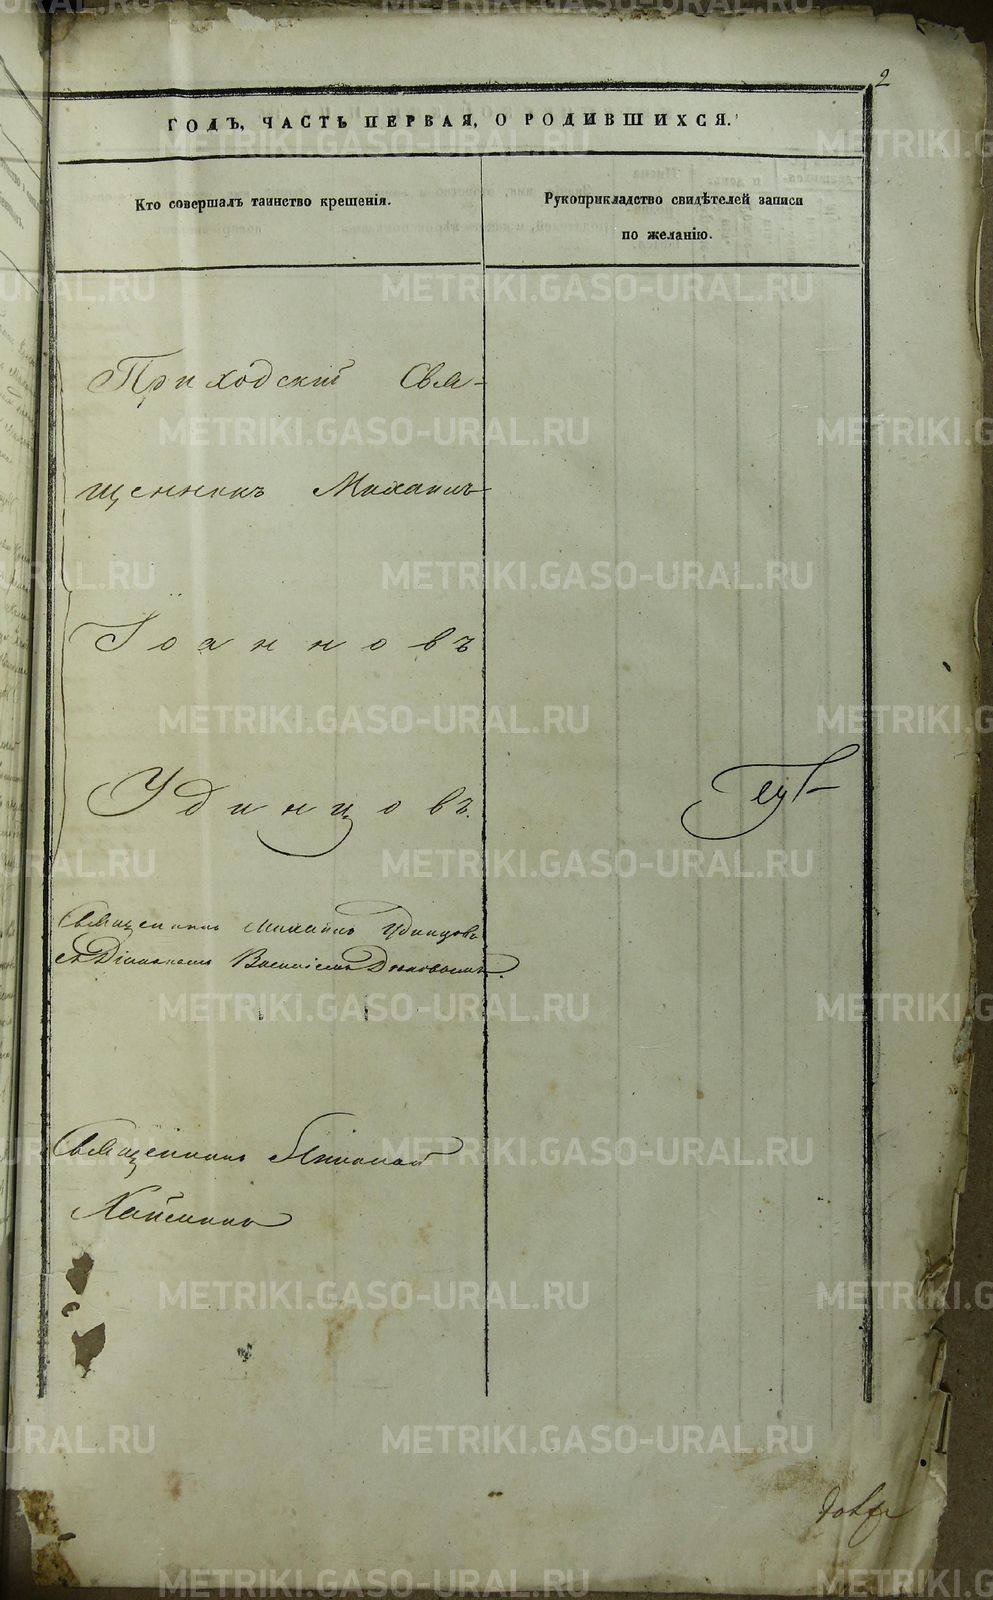 2
ГОДЪ, ЧАСТЬ ПЕРВАЯ, О РОДИВШИХСЯ.
Кто совершалъ таинство крещенія.
Рукоприкладство свидѣтелей записи
по желанію.
Приходскій Свя-
щенникъ Михаилъ
Іоанновъ
Удинцовъ.
Священникъ Михаилъ Удинцовъ
съ Діакономъ Василіемъ
Священникъ Николай
METRIKI.GASO-URAL.RU